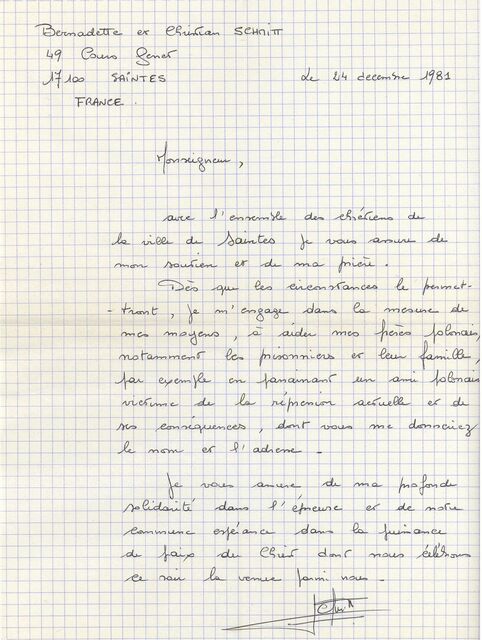 Bernadette et Christian SCHMITT
49 Cours Genet
17100 SAINTES
Le 24 decembre 1981
FRANCE.
Monseigneur,
avec l'ensemble des chrétiens de
la ville de Saintes je vous assure de
mon soutien et de ma prière.
Dès que les circonstances le permet-
-tront, je m'engage dans la mesure de
mes moyens, à aider mes frères polonais,
notamment les prisonniers et leur famille,
par exemple en parrainant un ami polonais
victime de la répression actuelle et de
ses conséquences, dont vous me donneriez
le nom et l'adresse.
Je vous assure de ma profonde
solidarité dans l'épreuve et de notre
commune espérance dans la puissance
de paix du Christ dont nous célébrons
ce soir la venue parmi nous.